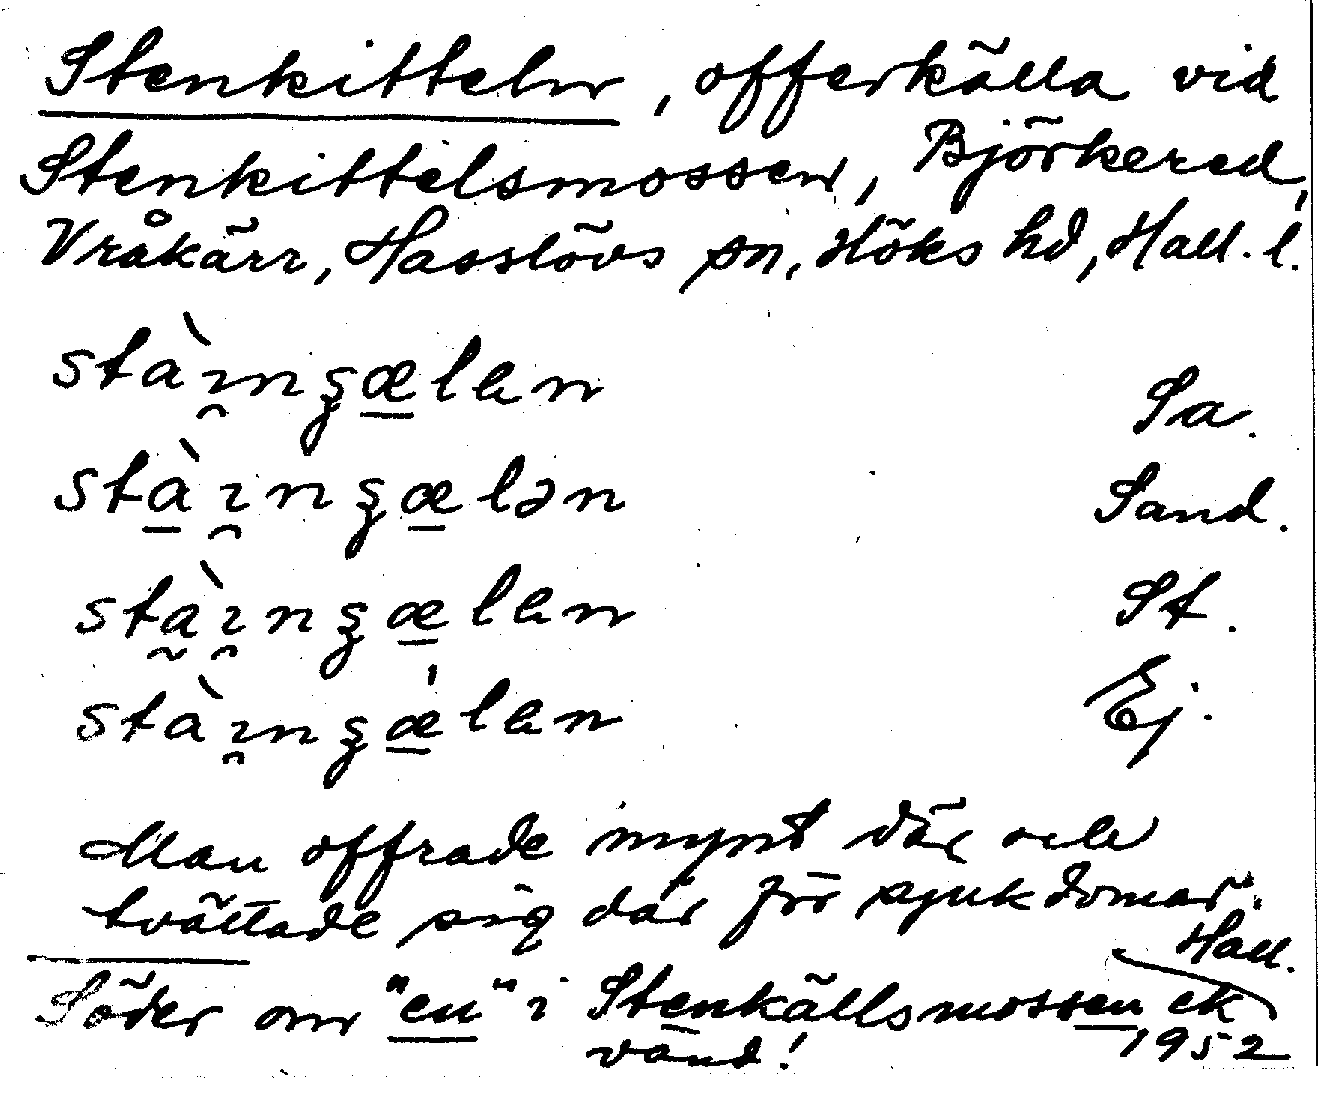 Stenkitteln, offerkälla vid
Stenkittelsmossen, Björkered,
Vråkärr, Hasslövs sn, Höks hd, Hall. l.
stàı̯nʒæ̱len Sa.
stà̱ı̯nʒæ̱lən Sand.
stà̰ı̯nʒæ̱len St.
stàı̯nʒǽ̱len Ej.
Man offrade mynt där och
tvättade sig där för sjukdomar.
Hall.
Söder om "en" i Stenkällsmossen ek
vänd! 1952